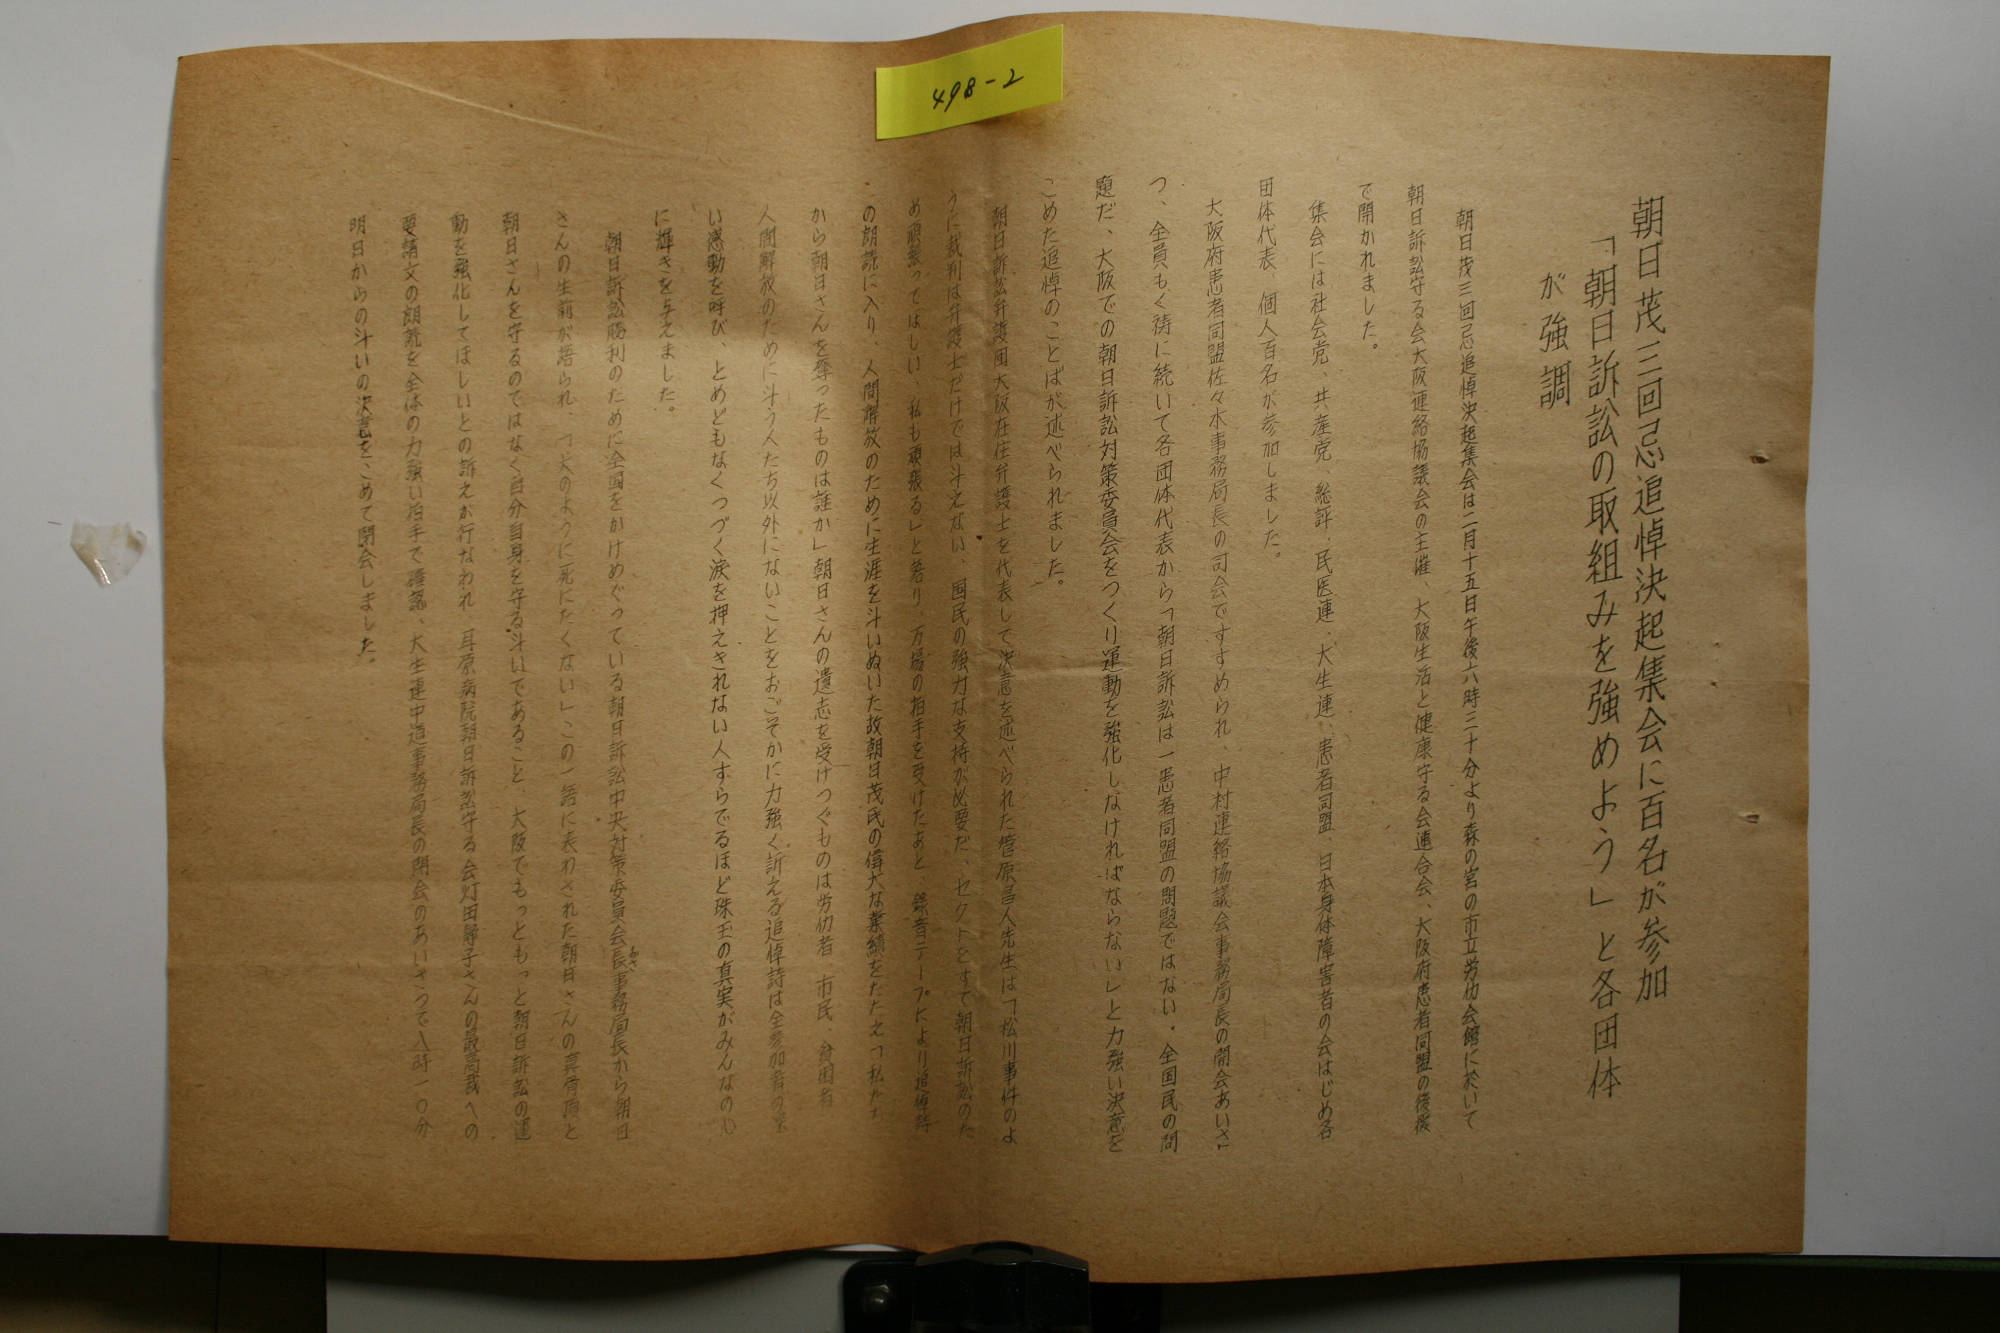 498-2
朝日茂三回忌追悼決起集会に百名が参加
「朝日訴訟の取組みを強めよう」と各団体
が強調
朝日茂三回忌追悼決起集会は二月十五日午後六時三十分より森の宮の市立労仂会館に於いて
朝日訴訟守る会大阪連絡協議会の主催、大阪生活と健康守る会連合会、大阪府患者同盟の後援
で開かれました。
集会には社会党、共産党、総評、民医連、大生連、患者同盟、日本身体障害者の会はじめ各
団体代表、個人百名が参加しました。
大阪府患者同盟佐々木事務局長の司会ですすめられ、中村連絡協議会事務局長の開会あいさ
つ、全員もく祷に続いて各団体代表から「朝日訴訟は一患者同盟の問題ではない。全国民の問
題だ、大阪での朝日訴訟対策委員会をつくり運動を強化しなければならない」と力強い決意を
こめた追悼のことばが述べられました。
朝日訴訟弁護団大阪在住弁護士を代表して決意を述べられた菅原昌人先生は「松川事件のよ
うに裁判は弁護士だけでは斗えない、国民の強力な支持が必要だ、セクトをすて朝日訴訟のた
め頑張ってほしい、私も頑張る」と語り、万場の拍手を受けたあと、録音テープにより追悼詩
の朗読に入り、人間解放のために生涯を斗いぬいた故朝日茂氏の偉大な業績をたたえ「私たち
から朝日さんを奪ったものは誰か」朝日さんの遺志を受けつぐものは労仂者、市民、貧困者
人間解放のために斗う人たち以外にないことをおごそかに力強く訴える追悼詩は全参加者の深
い感動を呼び、とめどもなくつづく涙を押えきれない人すらでるほど珠玉の真実がみんなの心
に輝きを与えました。
朝日訴訟勝利のために全国をかけめぐっている朝日訴訟中央対策委員会長事務局長から朝日
さんの生前が語られ、「犬のように死にたくない」この一語に表わされた朝日さんの真骨頂と
朝日さんを守るのではなく自分自身を守る斗いであること、大阪でもっともっと朝日訴訟の運
動を強化してほしいとの訴えが行なわれ、耳原病院朝日訴訟守る会灯田静子さんの最高裁への
要請文の朗読を全体の力強い拍手で確認、大生連中道事務局長の閉会のあいさつで八時一〇分
明日からの斗いの決意をこめて閉会しました。